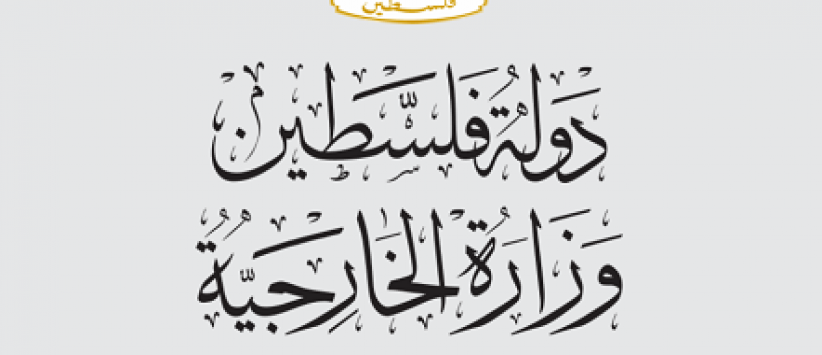 فلسطين
دَولةُ فَلسَّطين
وَزَارَةُ الخَارِجيّةُ